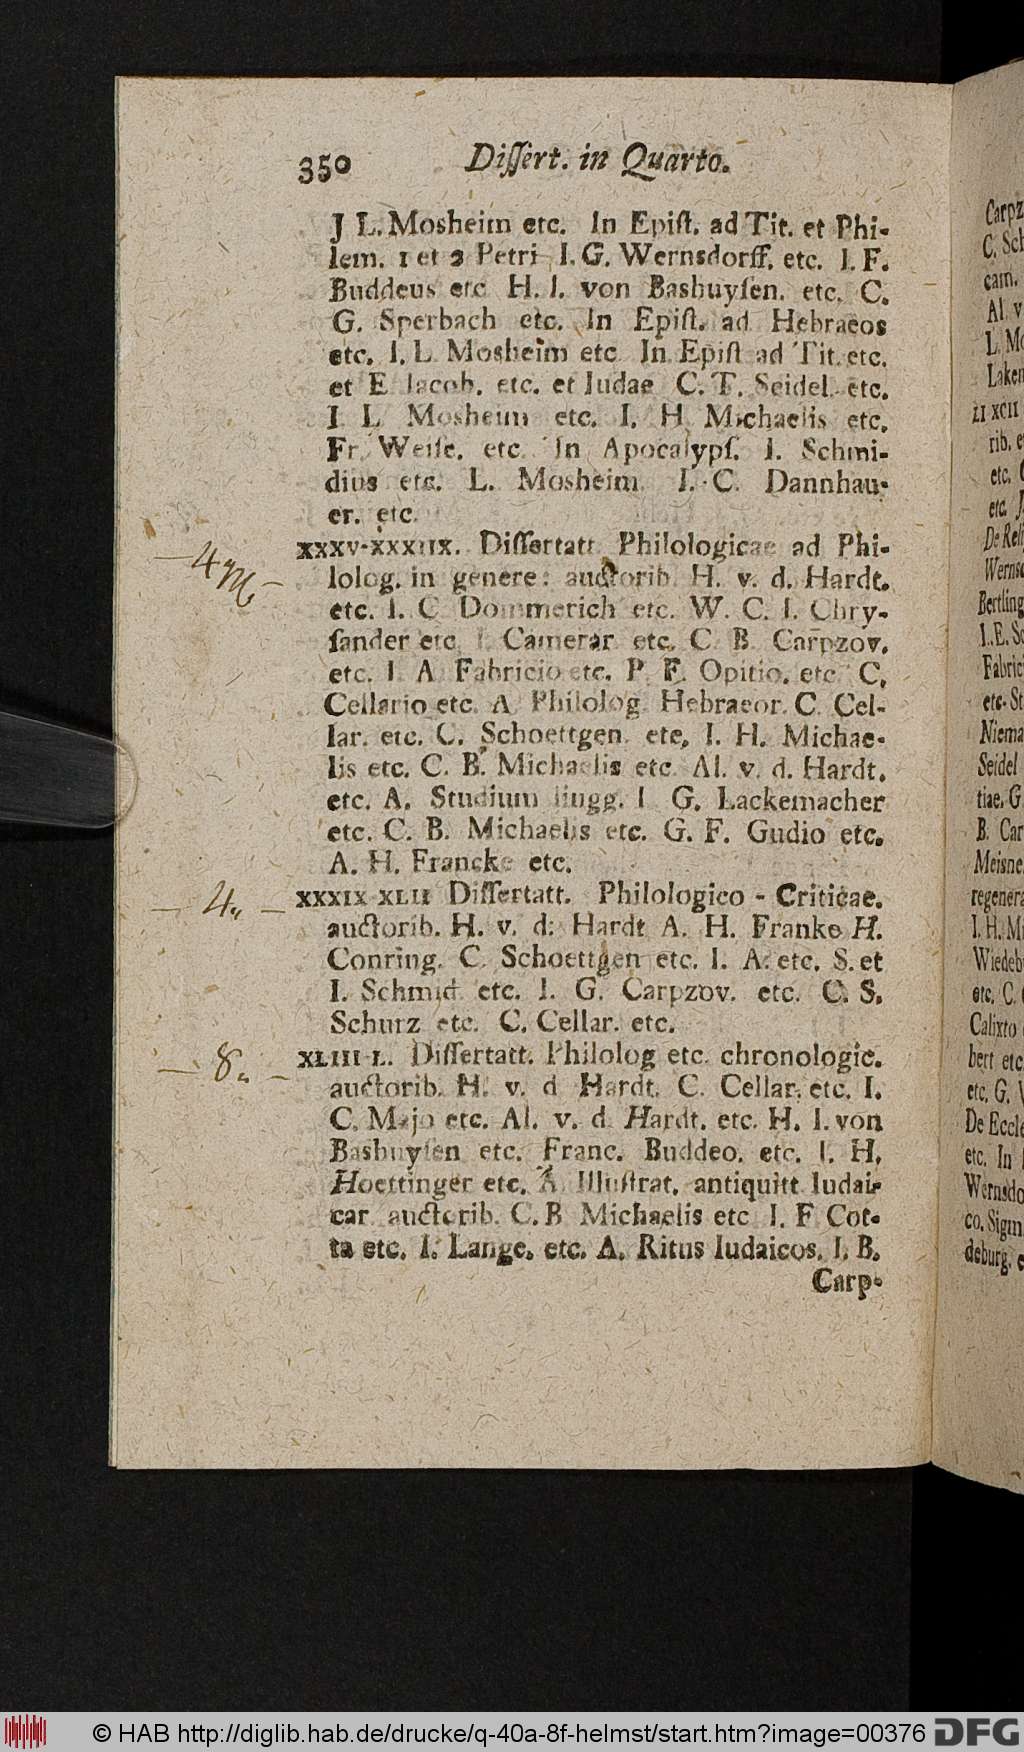 350 Dissert. in Quarto.
J L. Mosheim etc. In Epiſt. ad Tit. et Phi-
lem. 1 et 2 Petri I. G. Wernsdorff. etc. I. F.
Buddeus etc H. I. von Bashuyſen. etc. C.
G. Sperbach etc. In Epiſt. ad Hebraeos
etc. I. L Mosheim etc In Epiſt ad Tit. etc.
et E Iacob. etc. et Iudae C. T. Seidel etc.
I L Mosheim etc. I. H Michaelis etc.
Fr. Weiſe. etc. In Apocalypſ. I. Schmi-
dius etc. L. Mosheim I. C. Dannhau-
er. etc.
— 4 — xxxv-xxxiix. Diſſertatt Philologicae ad Phi-
lolog. in genere: auctorib H. v. d. Hardt.
etc. I. C Dommerich etc. W. C. I. Chry-
ſander etc. I. Camerar etc. C. B Carpzov.
etc. I A Fabricio etc. P. F. Opitio. etc C.
Cellario etc. A Philolog Hebraeor. C Cel-
lar. etc. C. Schoettgen etc. I. H. Michae-
lis etc. C. B. Michaelis etc. Al. v. d. Hardt.
etc. A. Studium lingg. I G. Lackemacher
etc. C. B. Michaelis etc. G. F. Gudio etc.
A. H. Francke etc.
— 4. — xxxix-xlii Diſſertatt. Philologico - Criticae.
auctorib. H. v. d: Hardt A. H. Franke H.
Conring. C. Schoettgen etc. I. A. etc. S. et
I. Schmid etc. I. G. Carpzov. etc. C. S.
Schurz etc. C. Cellar. etc.
— 8. — xliii-l. Diſſertatt. Philolog etc. chronologic.
auctorib. H. v. d Hardt. C. Cellar. etc. I.
C. Majo etc. Al. v. d. Hardt. etc. H. I. von
Bashuyſen etc. Franc. Buddeo. etc. I. H.
Hoettinger etc. A Illuſtrat. antiquitt Iudai-
car auctorib. C. B Michaelis etc I. F Cot-
ta etc. I. Lange. etc. A. Ritus Iudaicos. I. B.
Carp-
© HAB http://diglib.hab.de/drucke/q-40a-8f-helmst/start.htm?image=00376 DFG